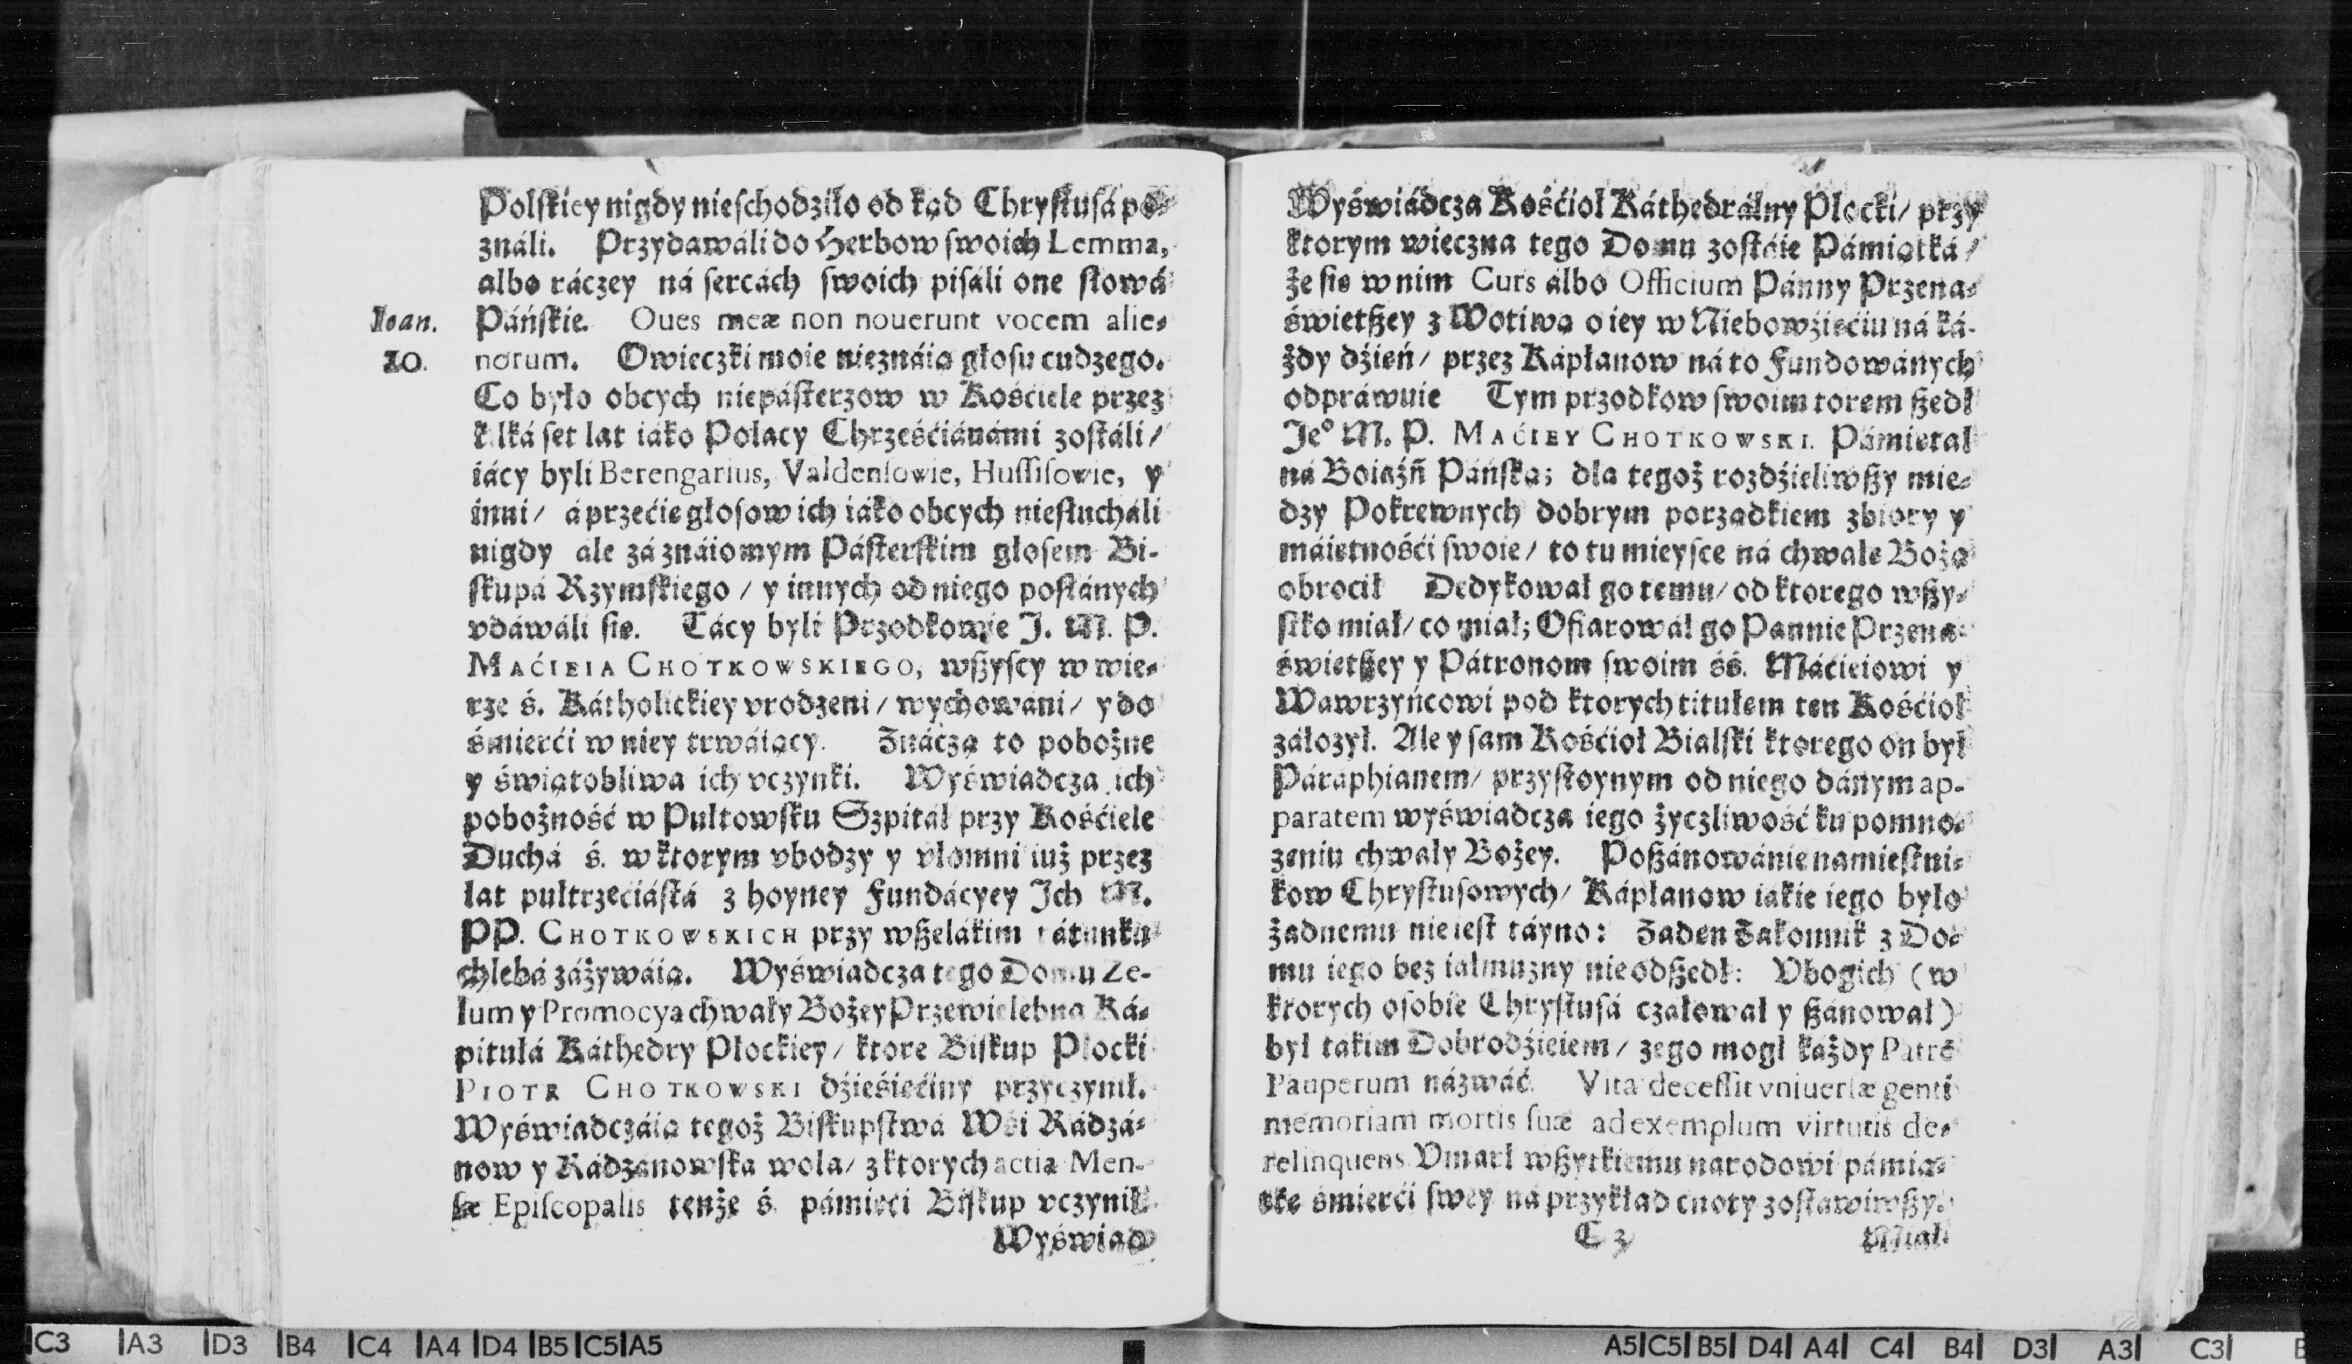 Polſkiey nigdy nieſchodziło od kąd Chryſtuſá po-
ználi. Przydawáli do Herbow ſwoich Lemma,
albo ráczey ná ſercách ſwoich piſáli one ſłowá
Ioan. Páńſkie. Oues meæ non nouerunt vocem alie-
10. norum. Owieczki moie nieznáią głoſu cudzego.
Co było obcych niepáſterzow w Kośćiele przez
kilká ſet lat iáko Polacy Chrześćiánámi zoſtáli /
iácy byli Berengarius, Valdenſowie, Huſſiſowie, y
inni / á przećię głoſow ich iáko obcych nieſłucháli
nigdy ale zá znáiomym Páſterſkim głoſem Bi-
ſkupá Rzymſkiego / y innych od niego poſłánych
vdáwáli ſię. Tácy byli Przodkowie J. M. P.
MAĆIEIA CHOTKOWSKIEGO, wſzyſcy w wie-
rze ś. Kátholickiey vrodzeni / wychowani / y do
śmierći w niey trwáiący. Znáczą to pobożne
y świątobliwa ich vczynki. Wyświadcza ich
pobożność w Pultowſku Szpitál przy Kośćiele
Duchá ś. w ktorym vbodzy y vłomni iuż przez
lat pułtrzeciáſtá z hoyney Fundácyey Jch M.
PP. CHOTKOWSKICH przy wſzelákim rátunku
chlebá záżywáią. Wyświadcza tego Domu Ze-
lum y Promocya chwały Bożey Przewielebna Ká-
pitułá Káthedry Płockiey / ktore Biſkup Płocki
PIOTR CHOTKOWSKI dźieśięćiny przyczynił.
Wyświadczáią tegoż Biſkupſtwá Wśi Rádzá-
now y Rádzanowſka wola / z ktorych actia Men-
ſæ Epiſcopalis tenże ś. pámięci Biſkup vczynił.
Wyświad
Wyświádcza Kośćioł Káthedrálny Płocki / przy
ktorym wieczna tego Domu zoſtáie Pámiątká /
że ſię w nim Curs álbo Officium Pánny Przena-
świętſzey z Wotiwą o iey w Niebowźięćiu ná ká-
żdy dźień / przez Kápłanow ná to Fundowánych
odpráwuie Tym przodkow ſwoim torem ſzedł
Jeº M. P. MAĆIEY CHOTKOWSKI. Pámiętał
ná Boiaźń Páńſką; dla tegoż rozdźieliwſzy mie-
dzy Pokrewnych dobrym porządkiem zbiory y
máiętnośći ſwoie / to tu mieyſce ná chwałę Bożą
obrocił Dedykował go temu / od ktorego wſzy-
ſtko miał / co miał; Ofiarowáł go Pannie Przena-
świętſzey y Pátronom ſwoim śś. Máćieiowi y
Wawrzyńcowi pod ktorych titułem ten Kośćioł
záłożył. Ale y ſam Kośćioł Bialſki ktorego on był
Páraphianem / przyſtoynym od niego dánym ap-
paratem wyświadcza iego życzliwość ku pomno-
zeniu chwały Bożey. Poſzánowánie namieſtni-
kow Chryſtuſowych / Kápłanow iakie iego było
żadnemu nie ieſt táyno: Żaden Zakonnik z Do-
mu iego bez iałmużny nie odſzedł: Vbogich (w
ktorych oſobie Chryſtuſá czałował y ſzánował)
był takim Dobrodźieiem / że go mogł każdy Patrē
Pauperum názwáć. Vita deceſſit vniuerſæ genti
memoriam mortis ſuæ ad exemplum virtutis de-
relinquens Vmarł wſzytkiemu narodowi pámią-
tkę śmierći ſwey ná przykład cnoty zoſtawiwſzy.
C 3 Miał